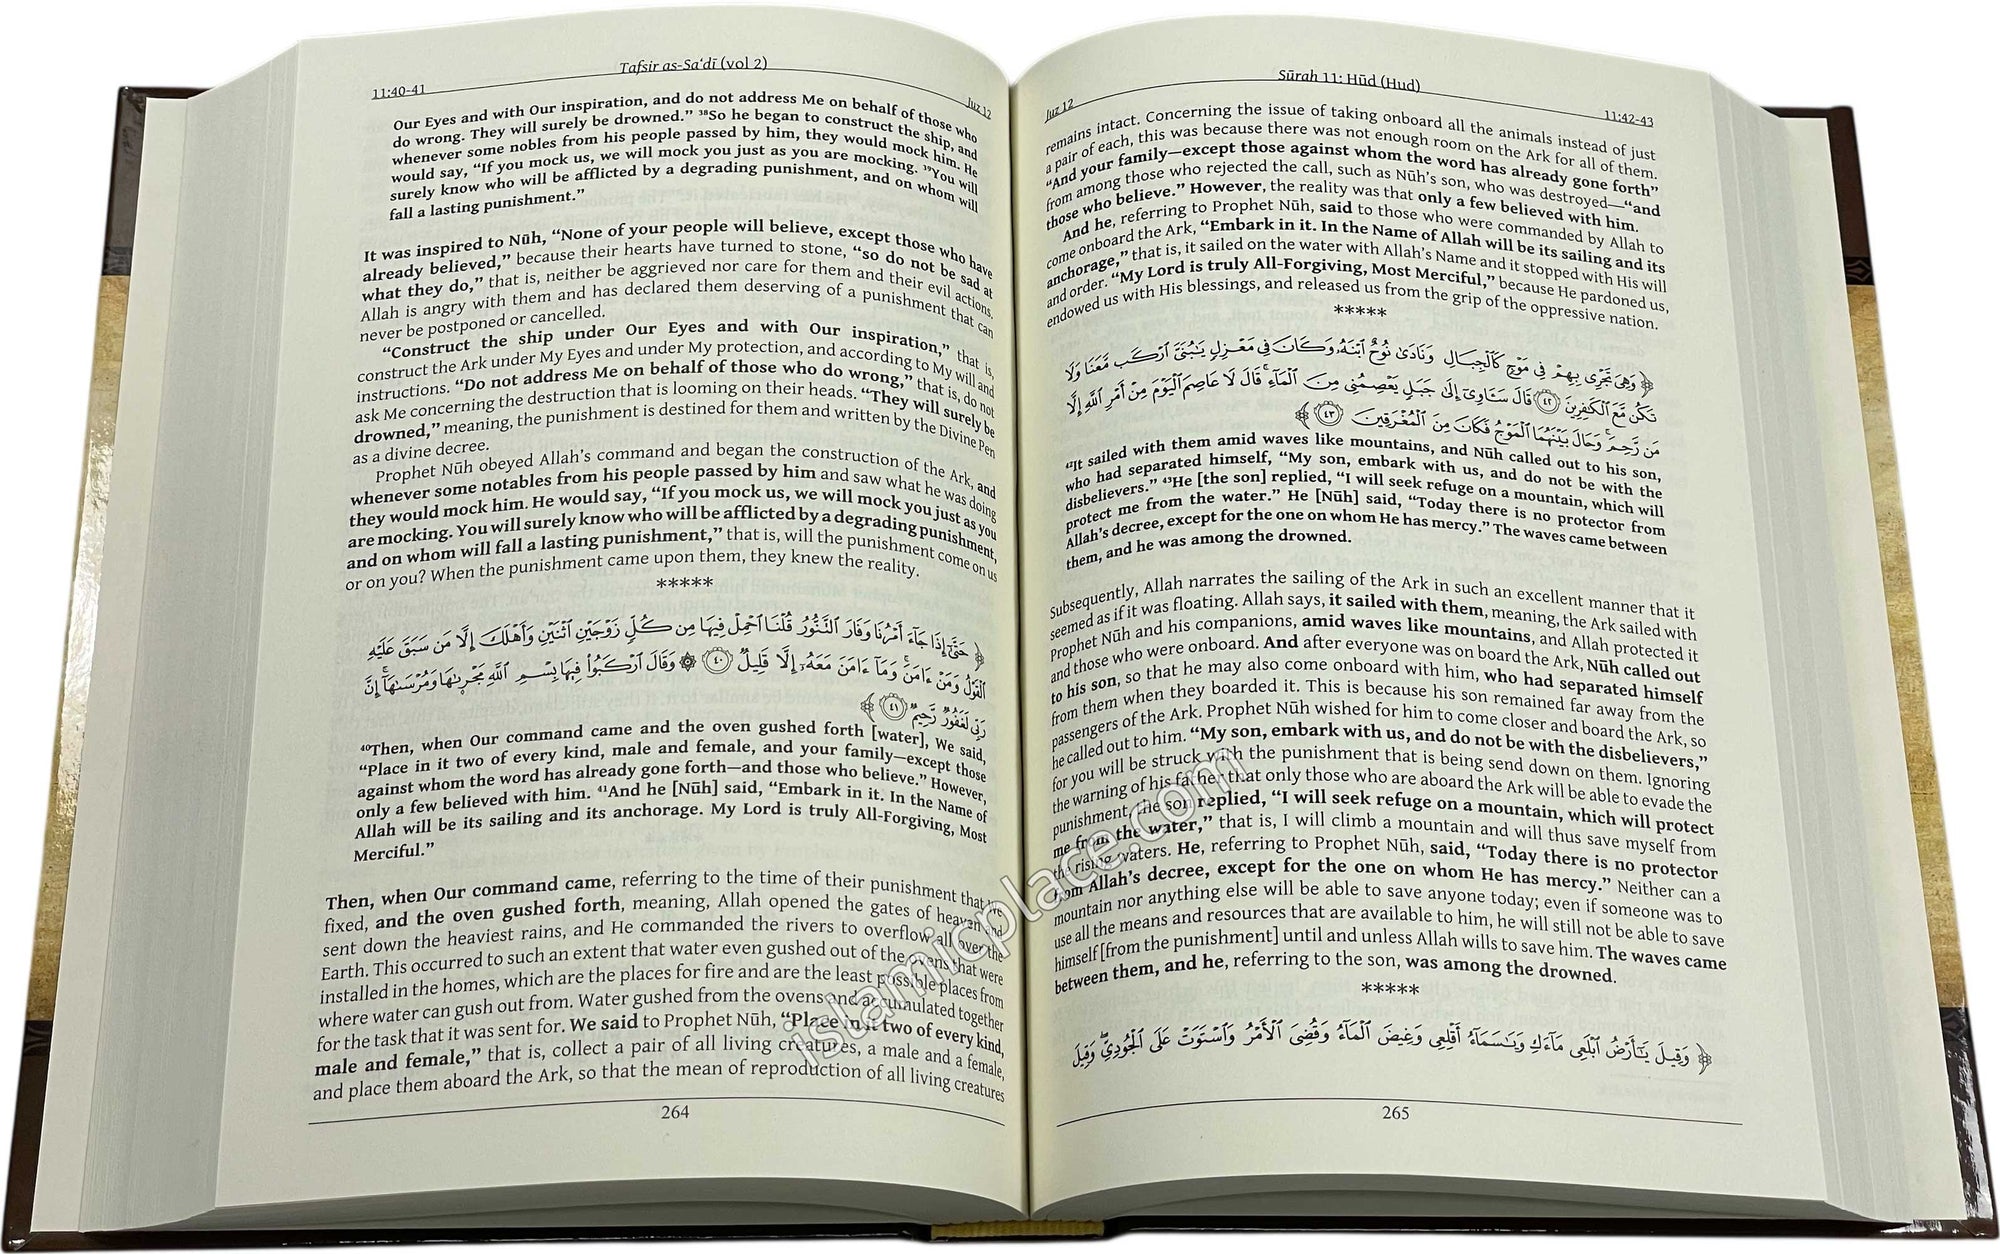 Tafsir as-Sa‘dī (vol 2)
11:40-41
Juz 12
Our Eyes and with Our inspiration, and do not address Me on behalf of those who
do wrong. They will surely be drowned.” ³⁸So he began to construct the ship, and
whenever some nobles from his people passed by him, they would mock him. He
would say, “If you mock us, we will mock you just as you are mocking. ³⁹You will
surely know who will be afflicted by a degrading punishment, and on whom will
fall a lasting punishment.”
It was inspired to Nūh, “None of your people will believe, except those who have
already believed,” because their hearts have turned to stone, “so do not be sad at
what they do,” that is, neither be aggrieved nor care for them and their evil actions.
Allah is angry with them and has declared them deserving of a punishment that can
never be postponed or cancelled.
“Construct the ship under Our Eyes and with Our inspiration,” that is,
construct the Ark under My Eyes and under My protection, and according to My will and
instructions. “Do not address Me on behalf of those who do wrong,” that is, do not
ask Me concerning the destruction that is looming on their heads. “They will surely be
drowned,” meaning, the punishment is destined for them and written by the Divine Pen
as a divine decree.
Prophet Nūh obeyed Allah’s command and began the construction of the Ark, and
whenever some notables from his people passed by him and saw what he was doing
they would mock him. He would say, “If you mock us, we will mock you just as you
are mocking. You will surely know who will be afflicted by a degrading punishment,
and on whom will fall a lasting punishment,” that is, will the punishment come on us
or on you? When the punishment came upon them, they knew the reality.
*****
﴿ حَتَّىٰٓ إِذَا جَآءَ أَمْرُنَا وَفَارَ ٱلتَّنُّورُ قُلْنَا ٱحْمِلْ فِيهَا مِن كُلٍّ زَوْجَيْنِ ٱثْنَيْنِ وَأَهْلَكَ إِلَّا مَن سَبَقَ عَلَيْهِ
ٱلْقَوْلُ وَمَنْ ءَامَنَ ۚ وَمَآ ءَامَنَ مَعَهُۥٓ إِلَّا قَلِيلٌ ﴿٤٠﴾ ۞ وَقَالَ ٱرْكَبُوا۟ فِيهَا بِسْمِ ٱللَّهِ مَجْر۪ىٰهَا وَمُرْسَىٰهَآ ۚ إِنَّ
رَبِّى لَغَفُورٌ رَّحِيمٌ ﴿٤١﴾ ﴾
⁴⁰Then, when Our command came and the oven gushed forth [water], We said,
“Place in it two of every kind, male and female, and your family—except those
against whom the word has already gone forth—and those who believe.” However,
only a few believed with him. ⁴¹And he [Nūh] said, “Embark in it. In the Name of
Allah will be its sailing and its anchorage. My Lord is truly All-Forgiving, Most
Merciful.”
Then, when Our command came, referring to the time of their punishment that We
fixed, and the oven gushed forth, meaning, Allah opened the gates of heaven and
sent down the heaviest rains, and He commanded the rivers to overflow all over the
Earth. This occurred to such an extent that water even gushed out of the ovens that were
installed in the homes, which are the places for fire and are the least possible places from
where water can gush out from. Water gushed from the ovens and accumulated together
for the task that it was sent for. We said to Prophet Nūh, “Place in it two of every kind,
male and female,” that is, collect a pair of all living creatures, a male and a female,
and place them aboard the Ark, so that the mean of reproduction of all living creatures
264
Sūrah 11: Hūd (Hud)
Juz 12
11:42-43
remains intact. Concerning the issue of taking onboard all the animals instead of just
a pair of each, this was because there was not enough room on the Ark for all of them.
“And your family—except those against whom the word has already gone forth”
from among those who rejected the call, such as Nūh’s son, who was destroyed—“and
those who believe.” However, the reality was that only a few believed with him.
And he, referring to Prophet Nūh, said to those who were commanded by Allah to
come onboard the Ark, “Embark in it. In the Name of Allah will be its sailing and its
anchorage,” that is, it sailed on the water with Allah’s Name and it stopped with His will
and order. “My Lord is truly All-Forgiving, Most Merciful,” because He pardoned us,
endowed us with His blessings, and released us from the grip of the oppressive nation.
*****
﴿ وَهِىَ تَجْرِى بِهِمْ فِى مَوْجٍ كَٱلْجِبَالِ وَنَادَىٰ نُوحٌ ٱبْنَهُۥ وَكَانَ فِى مَعْزِلٍ يَٰبُنَىَّ ٱرْكَب مَّعَنَا وَلَا
تَكُن مَّعَ ٱلْكَٰفِرِينَ ﴿٤٢﴾ قَالَ سَـَٔاوِىٓ إِلَىٰ جَبَلٍ يَعْصِمُنِى مِنَ ٱلْمَآءِ ۚ قَالَ لَا عَاصِمَ ٱلْيَوْمَ مِنْ أَمْرِ ٱللَّهِ إِلَّا
مَن رَّحِمَ ۚ وَحَالَ بَيْنَهُمَا ٱلْمَوْجُ فَكَانَ مِنَ ٱلْمُغْرَقِينَ ﴿٤٣﴾ ﴾
⁴²It sailed with them amid waves like mountains, and Nūh called out to his son,
who had separated himself, “My son, embark with us, and do not be with the
disbelievers.” ⁴³He [the son] replied, “I will seek refuge on a mountain, which will
protect me from the water.” He [Nūh] said, “Today there is no protector from
Allah’s decree, except for the one on whom He has mercy.” The waves came between
them, and he was among the drowned.
Subsequently, Allah narrates the sailing of the Ark in such an excellent manner that it
seemed as if it was floating. Allah says, it sailed with them, meaning, the Ark sailed with
Prophet Nūh and his companions, amid waves like mountains, and Allah protected it
and those who were onboard. And after everyone was on board the Ark, Nūh called out
to his son, so that he may also come onboard with him, who had separated himself
from them when they boarded it. This is because his son remained far away from the
passengers of the Ark. Prophet Nūh wished for him to come closer and board the Ark, so
he called out to him. “My son, embark with us, and do not be with the disbelievers,”
for you will be struck with the punishment that is being send down on them. Ignoring
the warning of his father that only those who are aboard the Ark will be able to evade the
punishment, the son replied, “I will seek refuge on a mountain, which will protect
me from the water,” that is, I will climb a mountain and will thus save myself from
the rising waters. He, referring to Prophet Nūh, said, “Today there is no protector
from Allah’s decree, except for the one on whom He has mercy.” Neither can a
mountain nor anything else will be able to save anyone today; even if someone was to
use all the means and resources that are available to him, he will still not be able to save
himself [from the punishment] until and unless Allah wills to save him. The waves came
between them, and he, referring to the son, was among the drowned.
*****
﴿ وَقِيلَ يَٰٓأَرْضُ ٱبْلَعِى مَآءَكِ وَيَٰسَمَآءُ أَقْلِعِى وَغِيضَ ٱلْمَآءُ وَقُضِىَ ٱلْأَمْرُ وَٱسْتَوَتْ عَلَى ٱلْجُودِىِّ ۖ وَقِيلَ
265
islamicplace.com